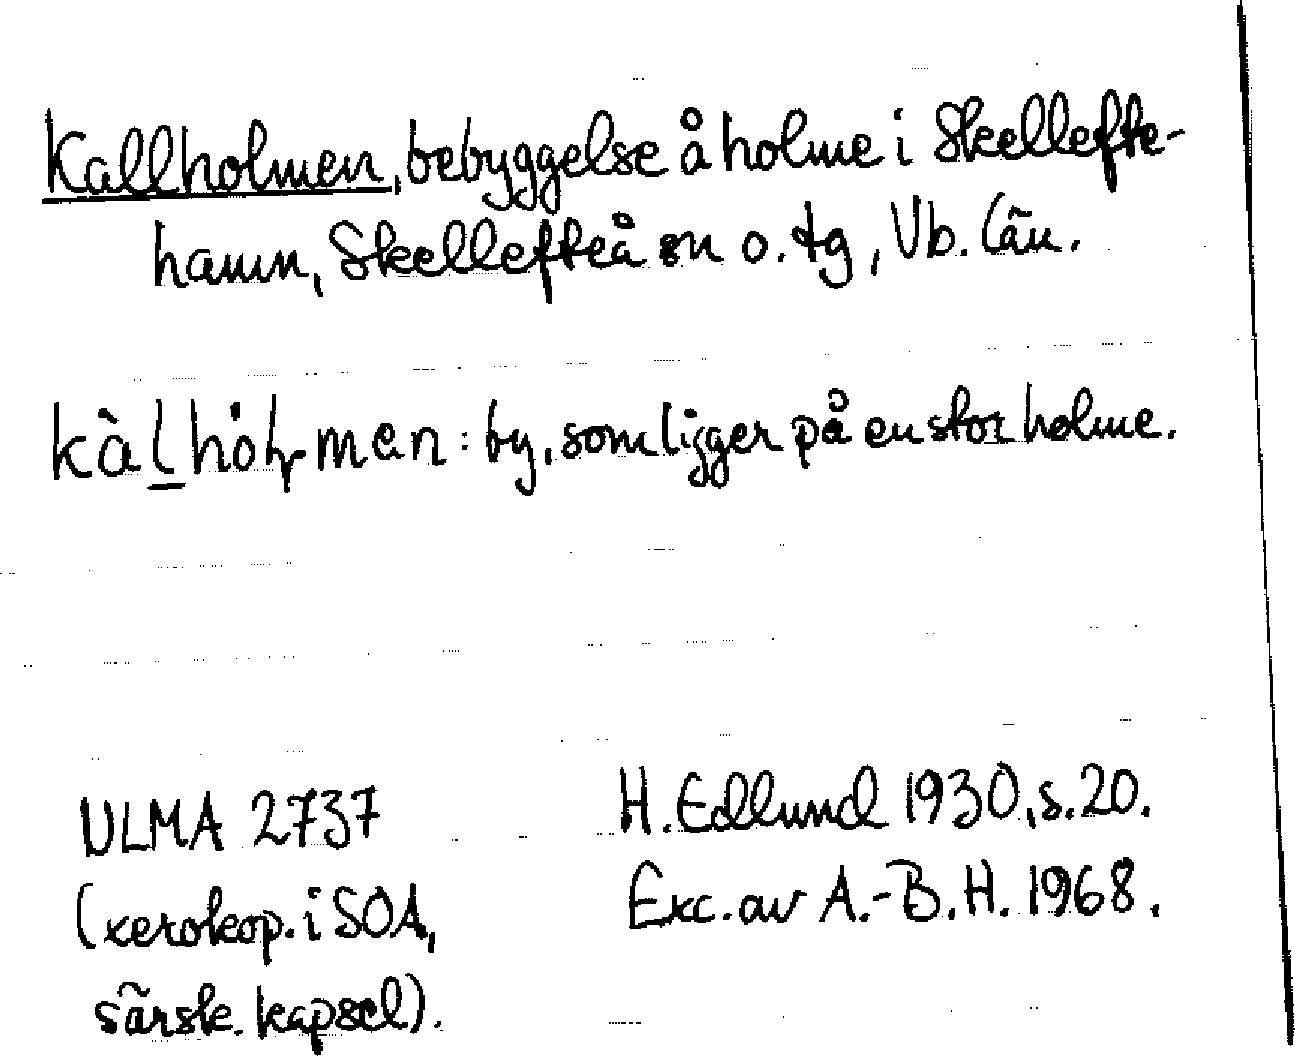 Kallholmen, bebyggelse å holme i Skellefte-
hamn, Skellefteå sn o. tg, Vb. län.
kàl̲hòɫmen: by, som ligger på en stor holme.
ULMA 2737
(xerokop. i SOA,
särsk. kapsel).
H. Edlund 1930, s. 20.
Exc. av A.-B. H. 1968.